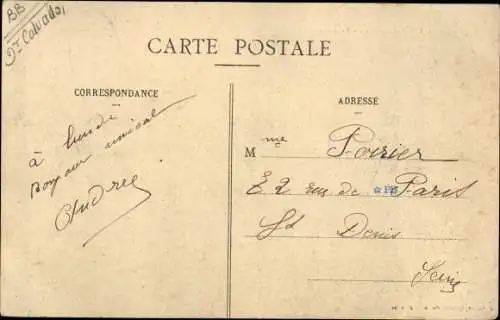 BB
Dt Calvados
CARTE POSTALE
CORRESPONDANCE
à lundi
Bonjour amical
Andrée
ADRESSE
Mme Poirier
82 rue de Paris
St Denis
Seine